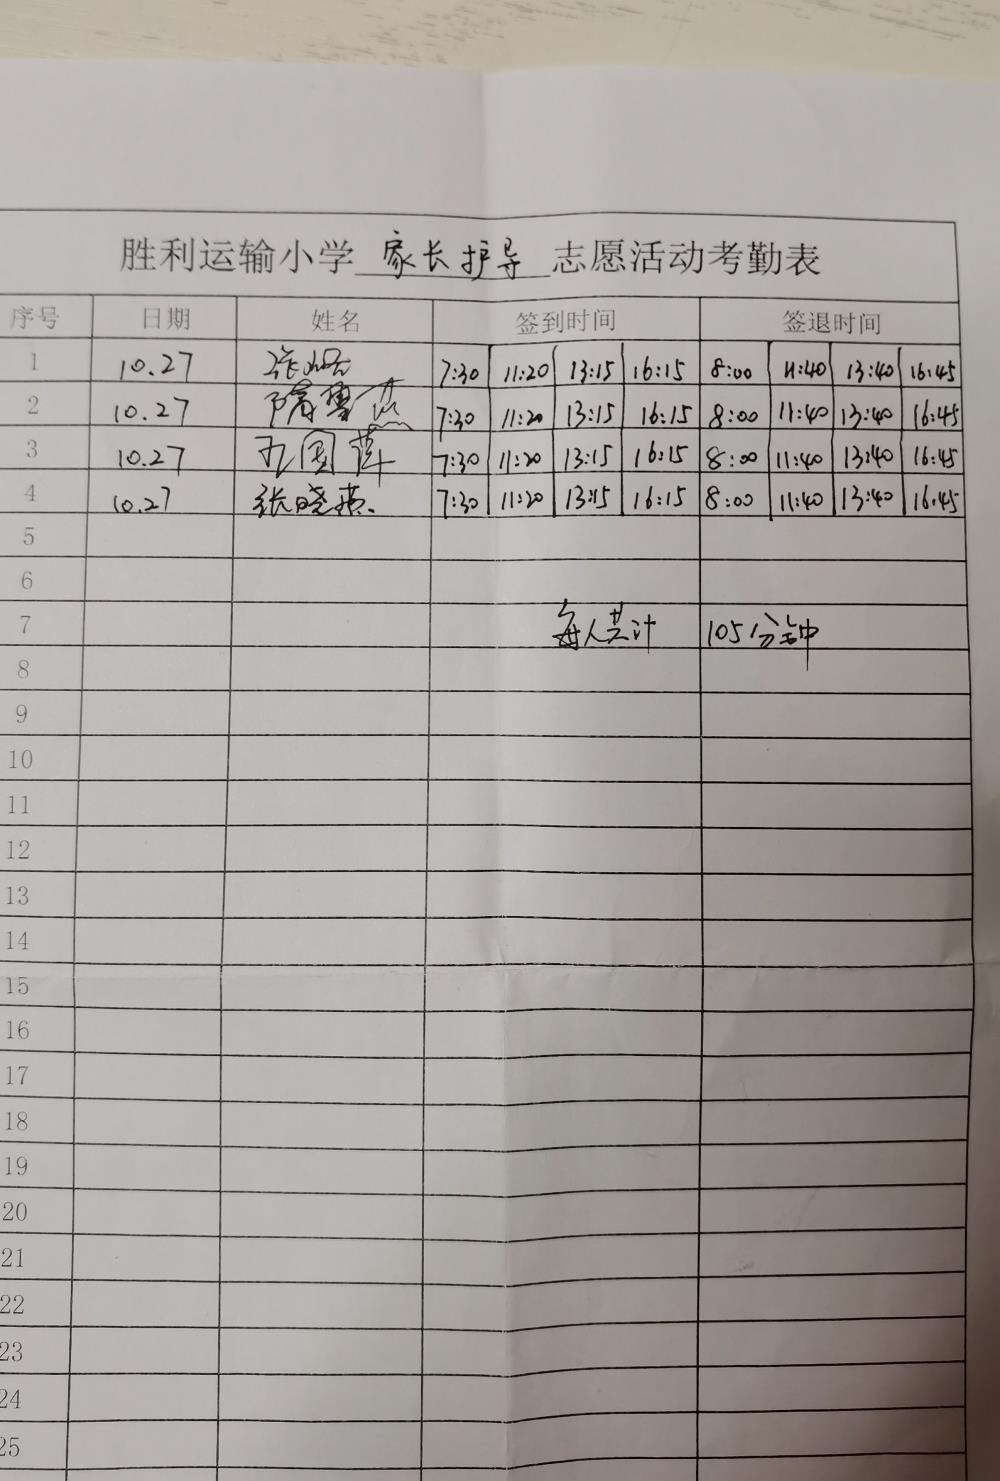 胜利运输小学 家长护导 志愿活动考勤表
序号 日期 姓名 签到时间 签退时间
1 10.27 7:30 11:20 13:15 16:15 8:00 11:40 13:40 16:45
2 10.27 7:30 11:20 13:15 16:15 8:00 11:40 13:40 16:45
3 10.27 7:30 11:20 13:15 16:15 8:00 11:40 13:40 16:45
4 10.27 张晓燕 7:30 11:20 13:15 16:15 8:00 11:40 13:40 16:45
5
6
7 每人共计 105分钟
8
9
10
11
12
13
14
15
16
17
18
19
20
21
22
23
24
25